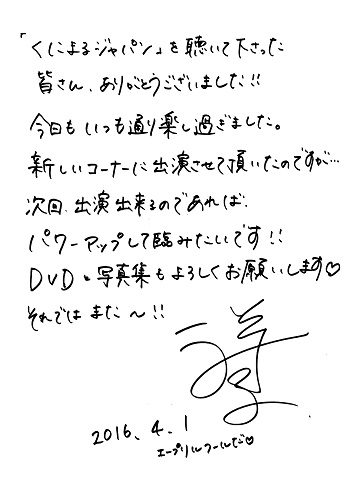 「くによるジャパン」を聴いて下さった
皆さん、ありがとうございました!!
今日もいつも通り楽し過ぎました。
新しいコーナーに出演させて頂いたのですが…
次回、出演出来るのであれば、
パワーアップして臨みたいです!!
DVD・写真集もよろしくお願いします♡
それでは また〜!!
2016.4.1
エープリルフールだ♡